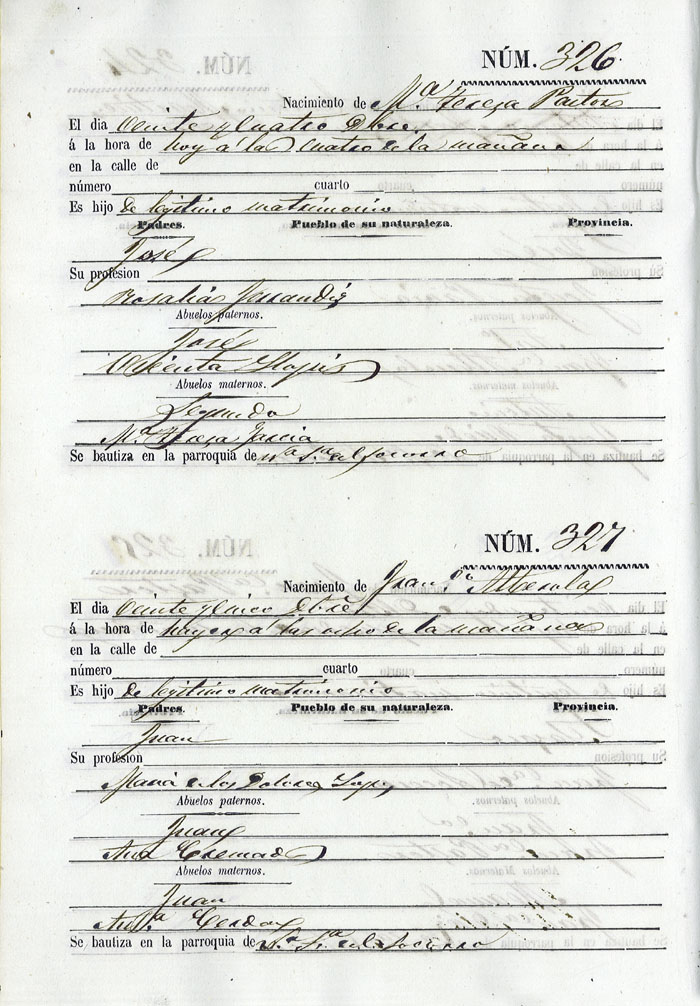 NÚM. 326
Nacimiento de Mª Teresa Pastor
El dia veinte y cuatro Dbre.
á la hora de hoy á las cuatro de la mañana
en la calle de
número cuarto
Es hijo de legitimo matrimonio
Padres. Pueblo de su naturaleza. Provincia.
José
Su profesion
Rosalia
Abuelos paternos.
José
Vicenta Llopis
Abuelos maternos.
Segundo
Mª Teresa Garcia
Se bautiza en la parroquia de Nª Sª del Socorro
NÚM. 327
Nacimiento de Franco Alberola
El dia veinte y cinco Dbre
á la hora de hoy á las ocho de la mañana
en la calle de
número cuarto
Es hijo de legitimo matrimonio
Padres. Pueblo de su naturaleza. Provincia.
Juan
Su profesion
Maria de los Dolores
Abuelos paternos.
Juan
Ana Cremades
Abuelos maternos.
Juan
Antª Cerdá
Se bautiza en la parroquia de Nª Sª del Socorro